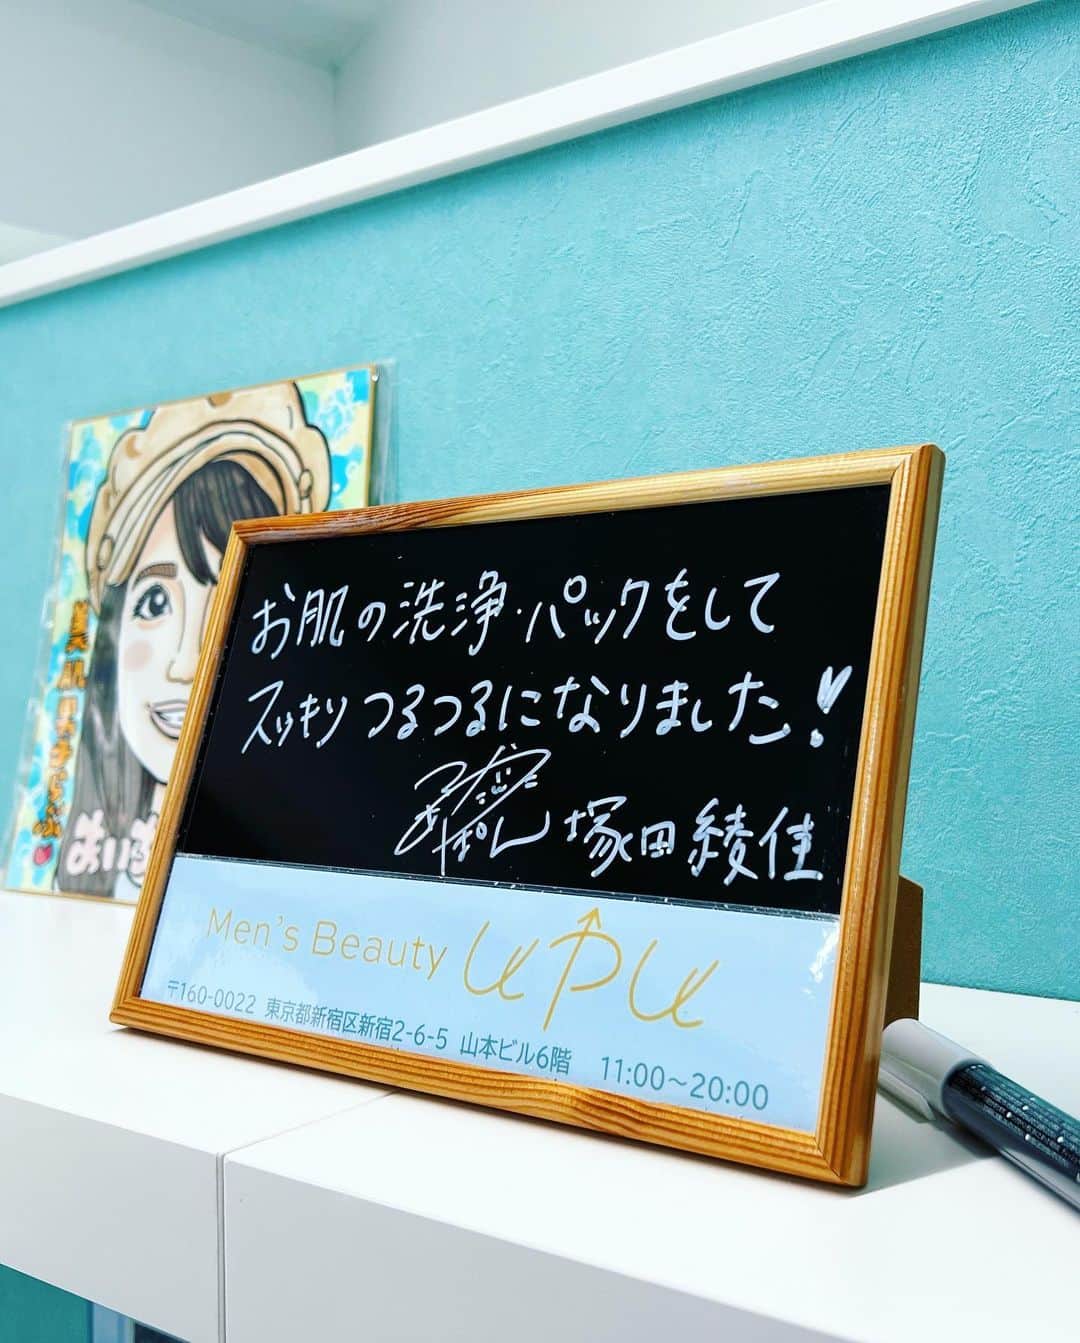 お肌の洗浄・パックをして
スッキリつるつるになりました!
あ
ぽん 塚田綾佳
Men's Beauty UPU
〒160-0022 東京都新宿区新宿2-6-5 山本ビル6階 11:00〜20:00
美肌男子